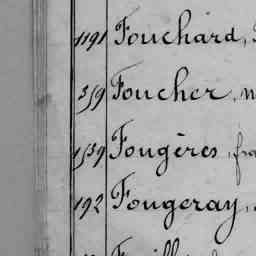 1191 Fouchard,
359 Foucher,
1539 Fougères,
192 Fougeray,